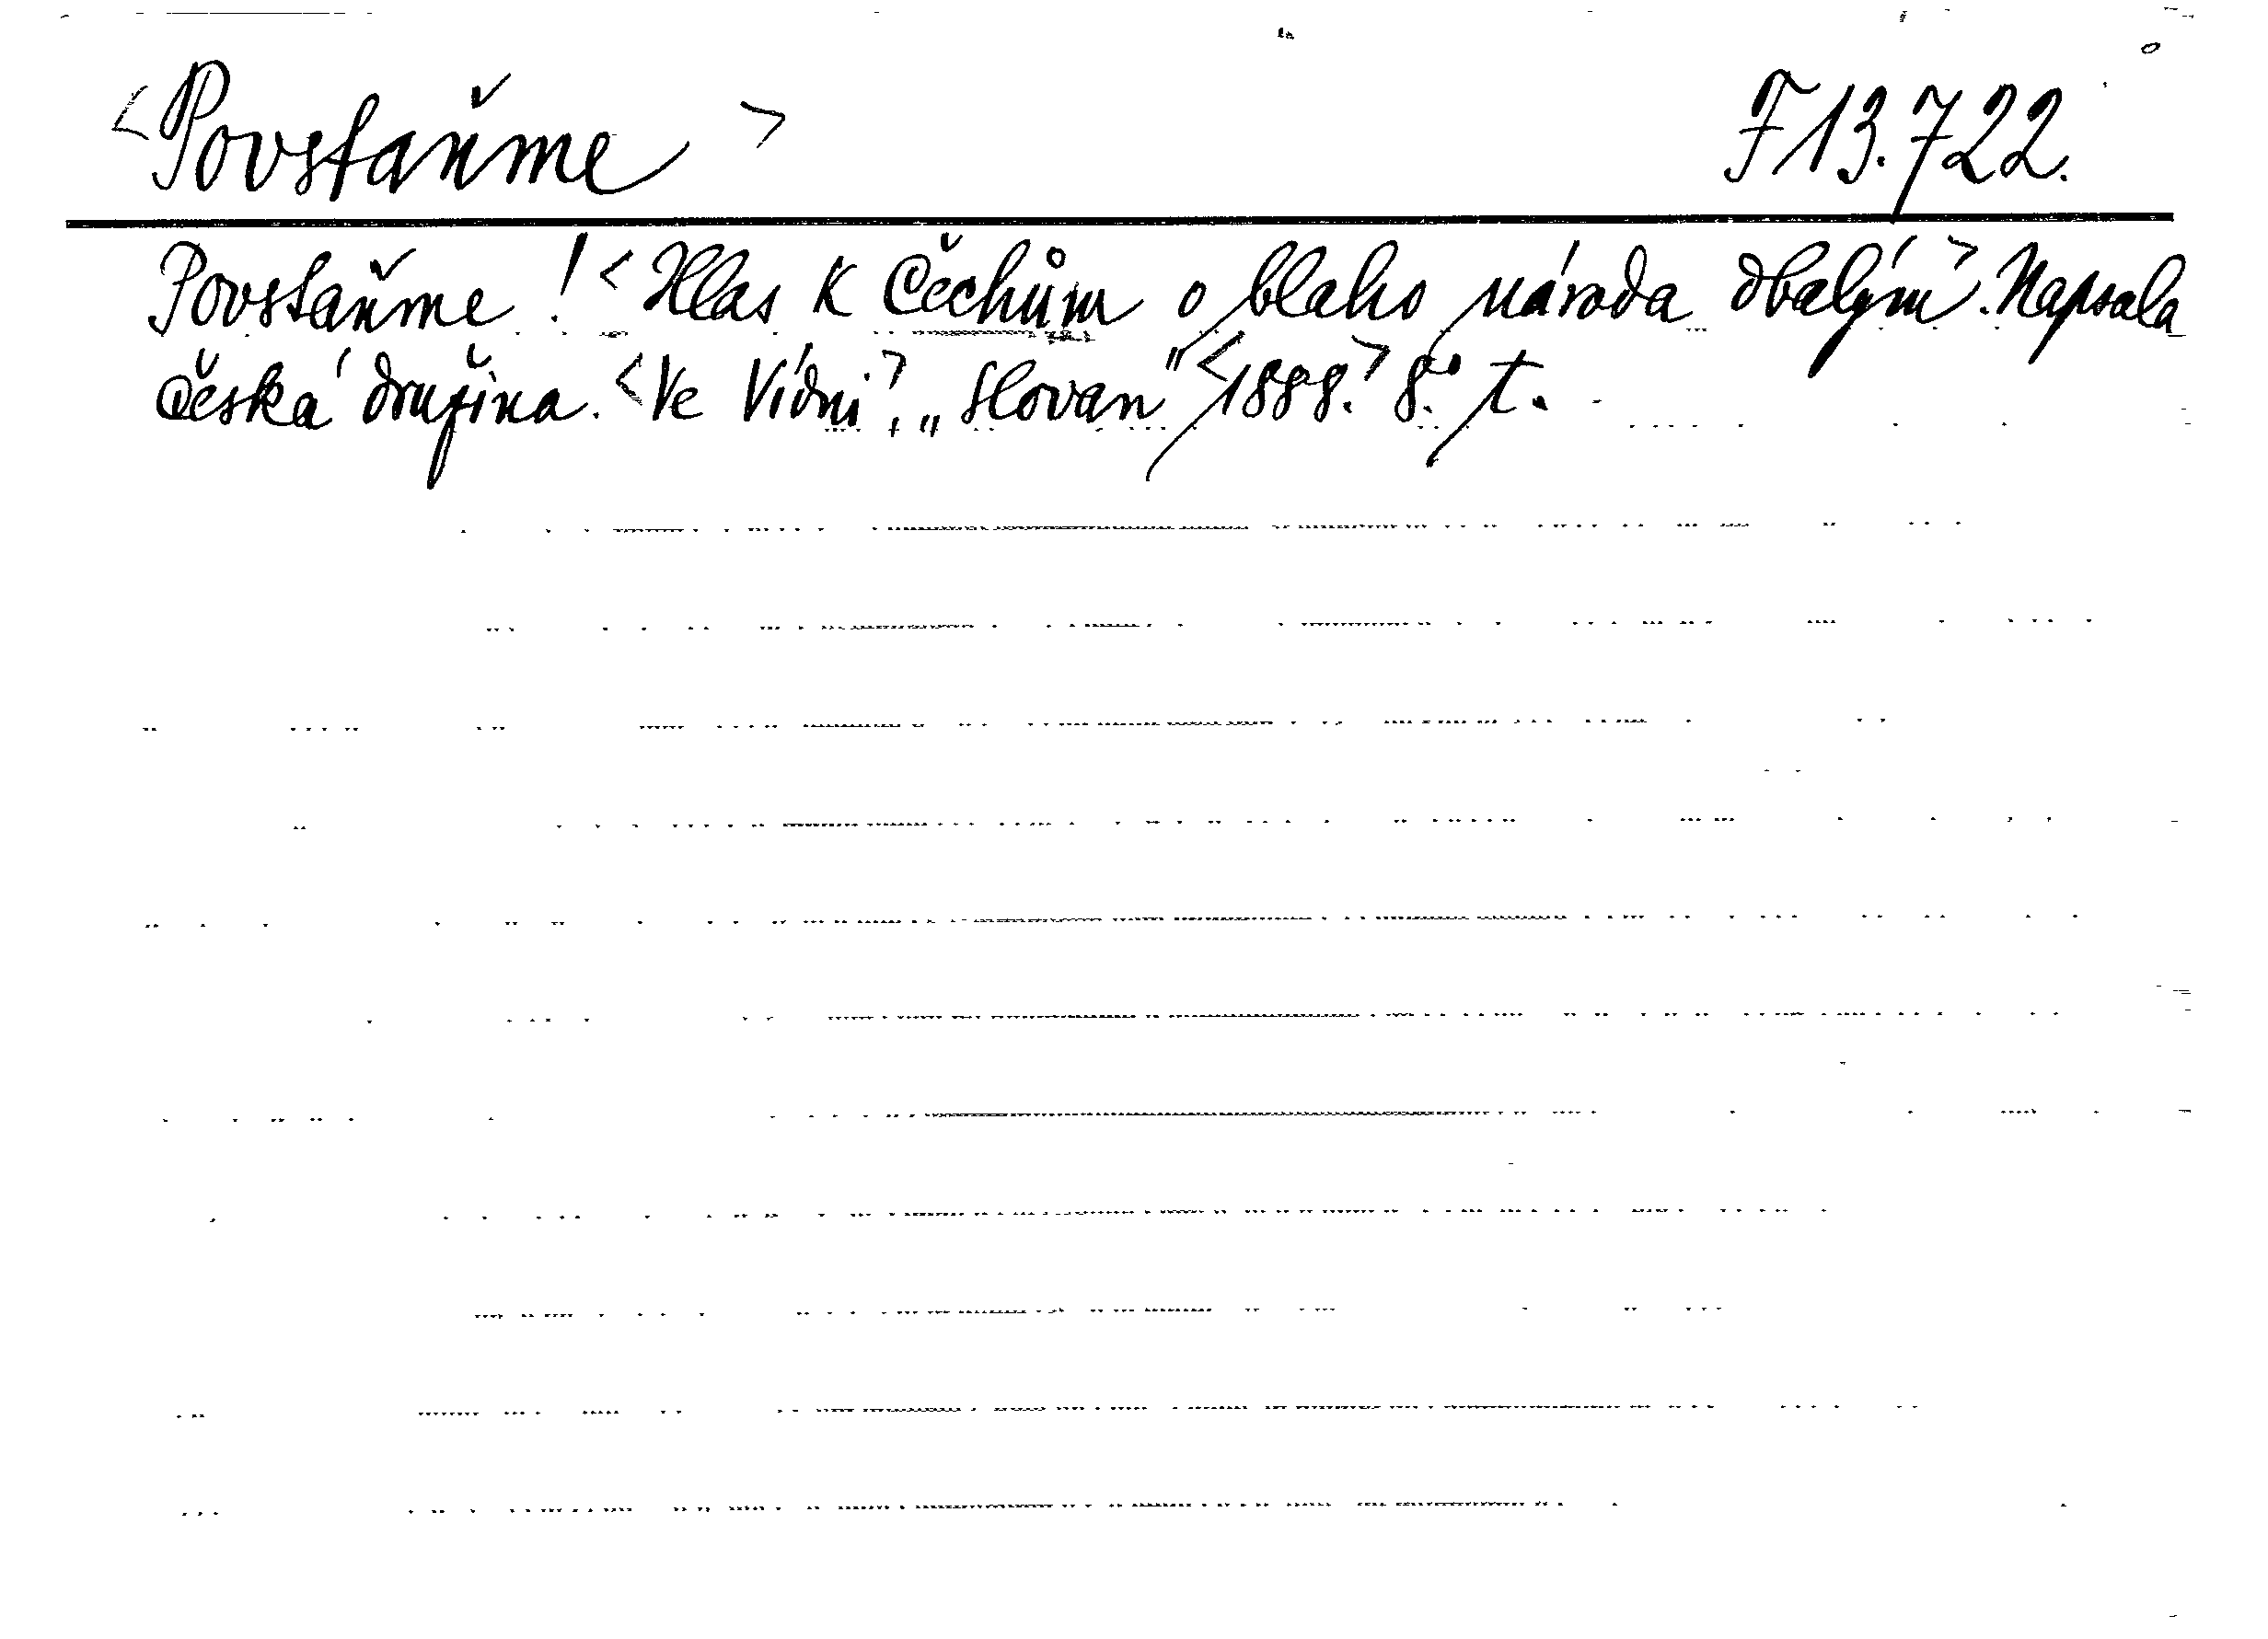 <Povstaňme> F 13.722.
Povstaňme! <Hlas k Čechům o blaho národa dbalým>. Napsala
Česká družina. <Ve Vídni>, „Slovan" <1888.> 8.° t.